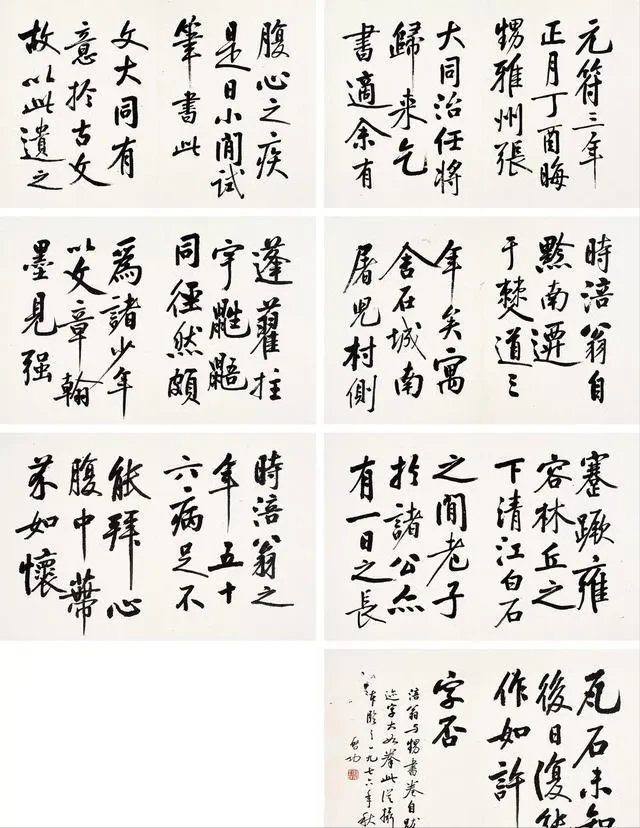 元符三年
正月丁酉晦
甥雅州張
大同治任將
歸来乞
書適余有
腹心之疾
是日小閒試
筆書此
文大同有
意於古文
故以此遺之
時涪翁自
黔南遷
于僰道三
年矣寓
舍在城南
屠兒村側
蓬藋拄
宇鼪鼯
同徑然頗
爲諸少年
以文章翰
墨見强
蹇蹶雍
容林丘之
下清江白石
之閒老子
於諸公亦
有一日之長
時涪翁之
年五十
六病足不
能拜心
腹中蔕
芥如懷
瓦石未知
後日復能
作如許
字否
涪翁与甥書卷自跋
迹字大如拳此從攝
本臨之一九七六年秋
启功